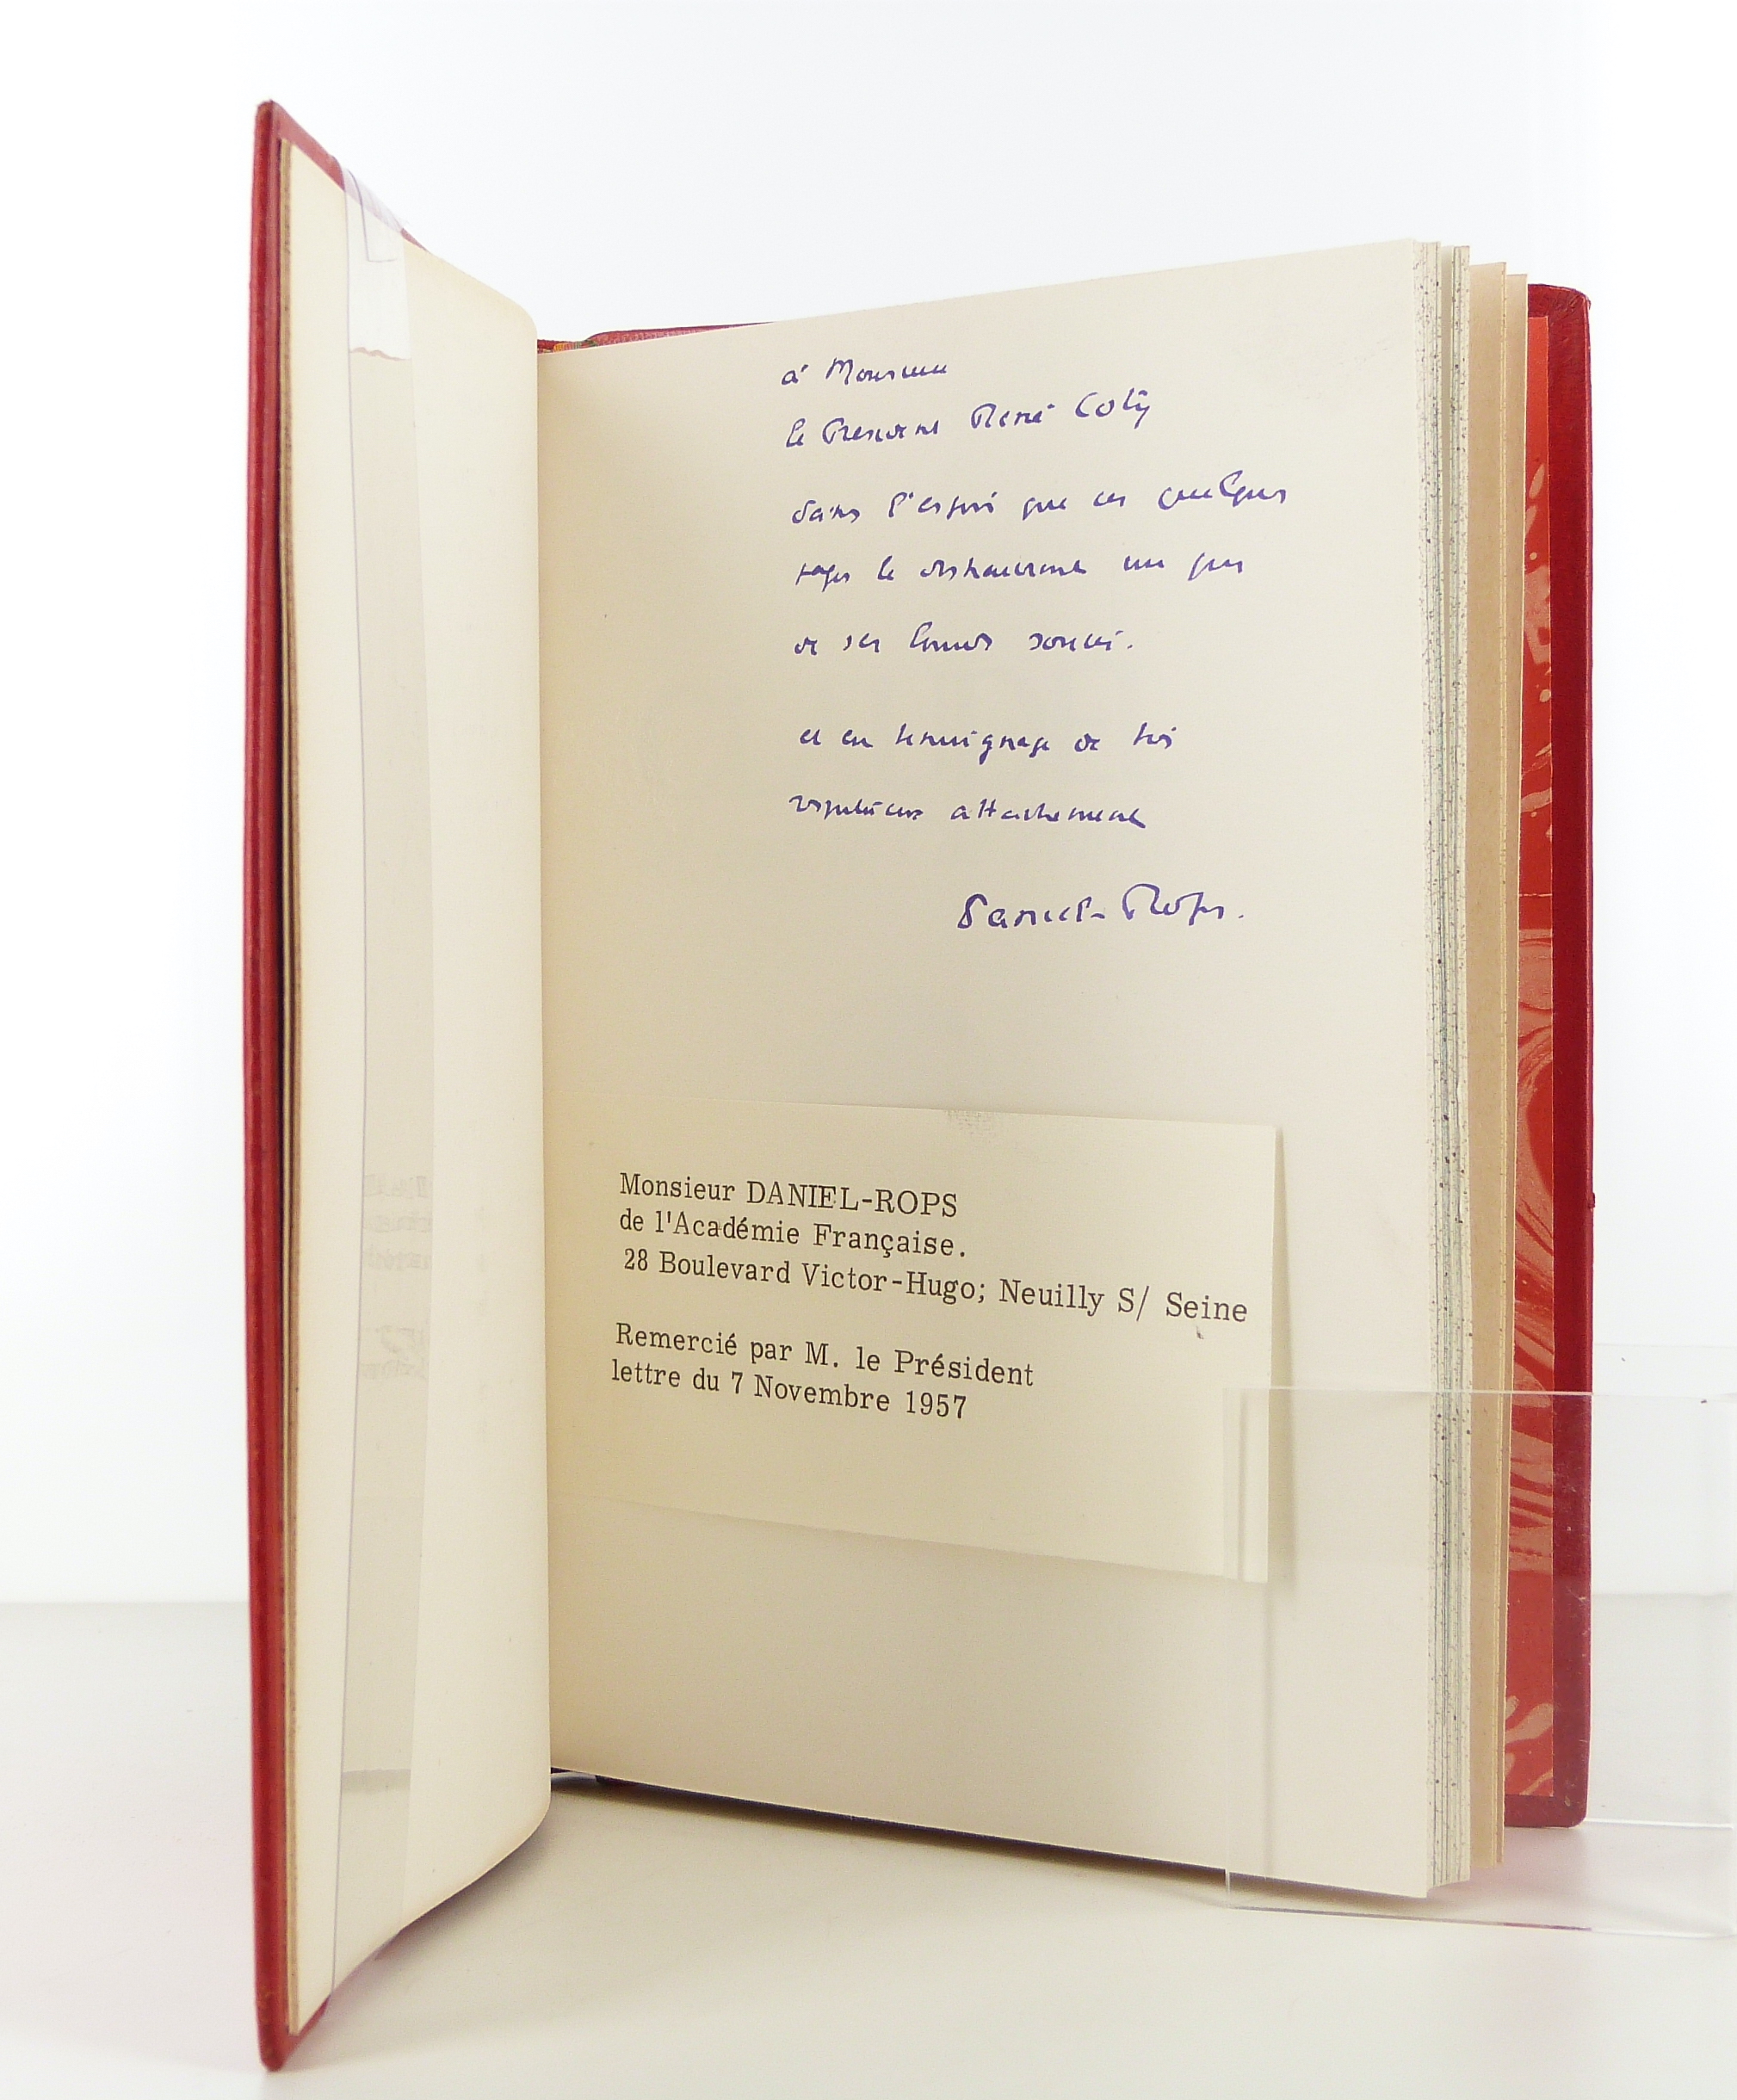 à Monsieur
le Président René Coty
dans l'espoir que ces quelques
pages le distrairont un peu
de ses lourds soucis.
et en témoignage de très
respectueux attachement
Daniel-Rops.
Monsieur DANIEL-ROPS
de l'Académie Française.
28 Boulevard Victor-Hugo; Neuilly S/ Seine
Remercié par M. le Président
lettre du 7 Novembre 1957